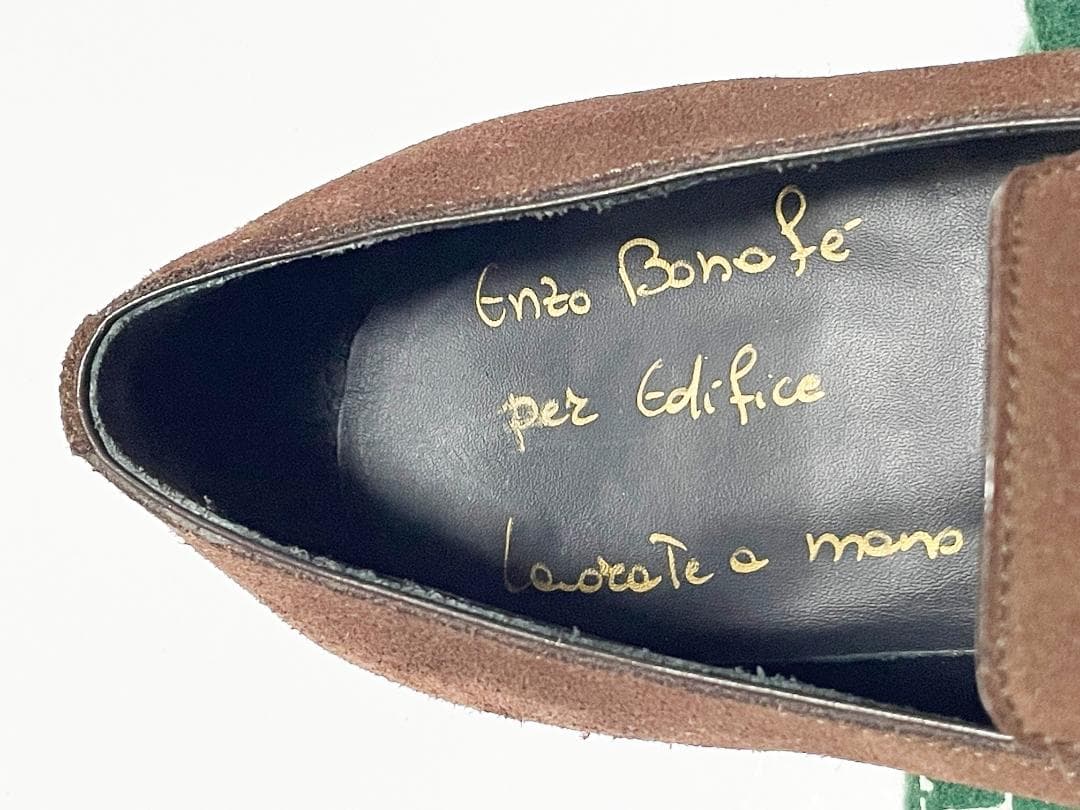 Enzo Bonafé
per Edifice
lavorate a mano